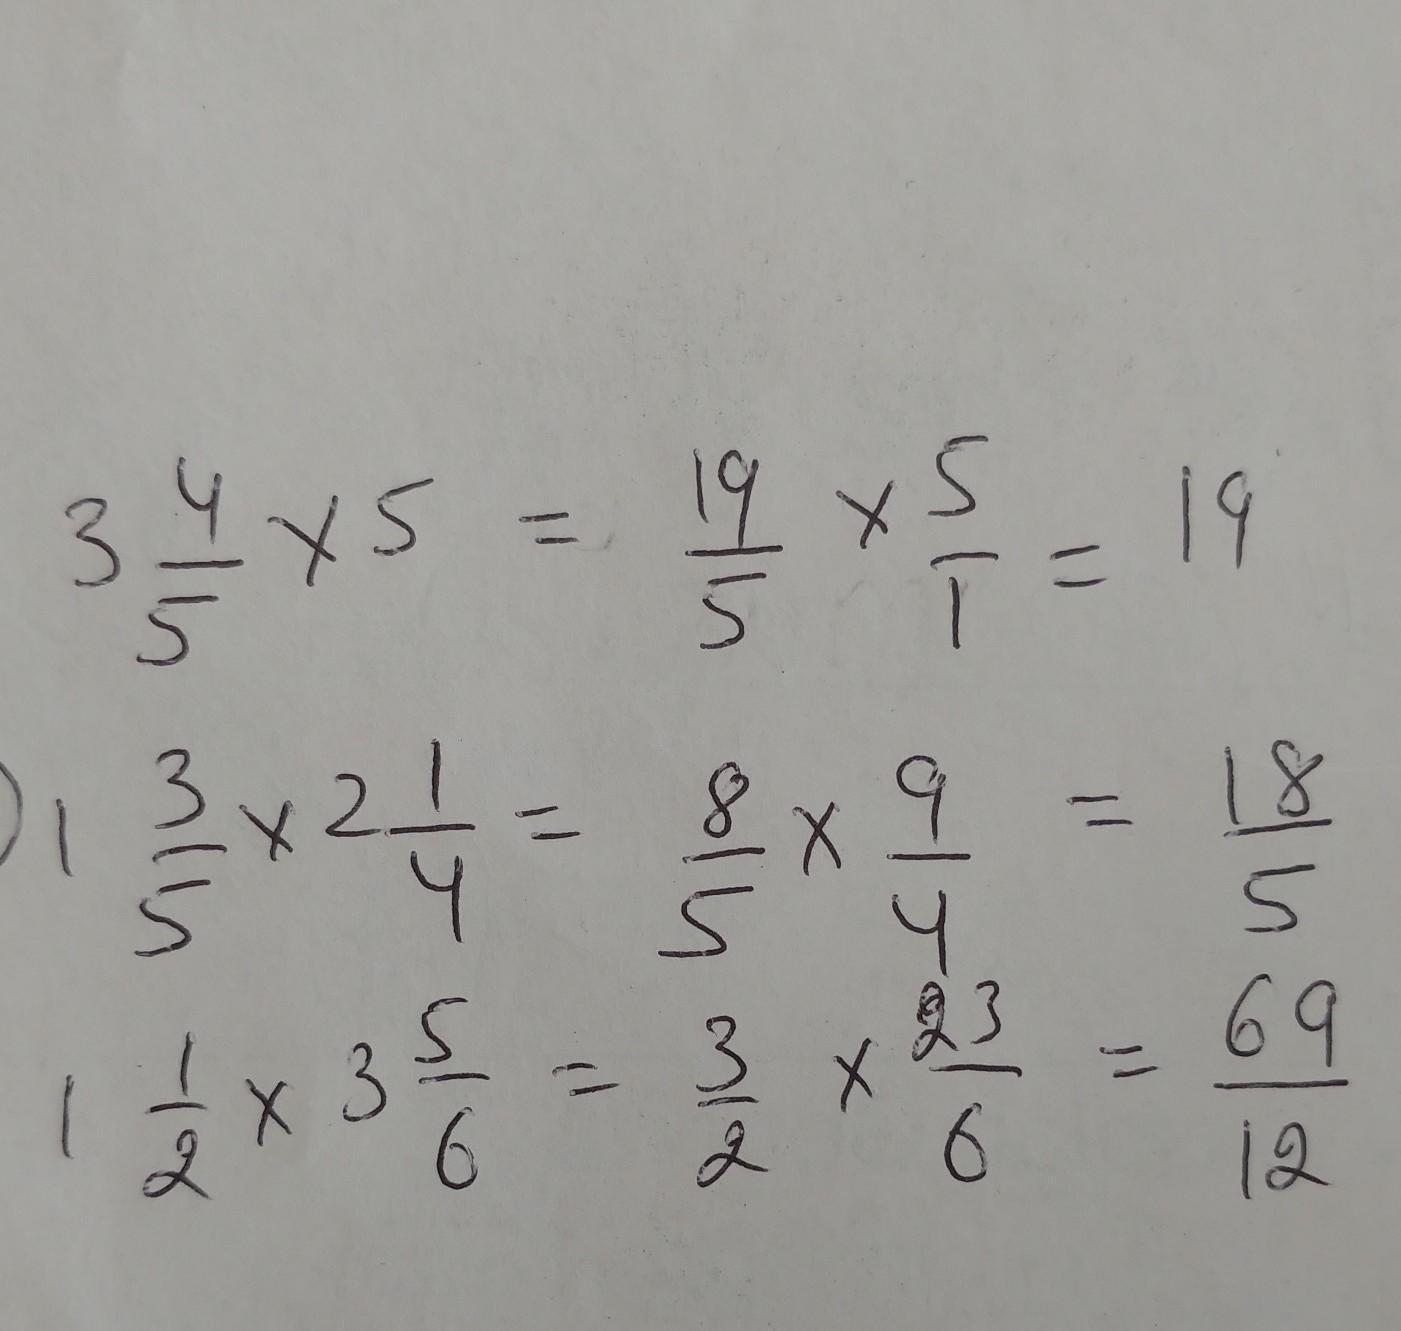 3 4/5 × 5 = 19/5 × 5/1 = 19
) 1 3/5 × 2 1/4 = 8/5 × 9/4 = 18/5
1 1/2 × 3 5/6 = 3/2 × 23/6 = 69/12